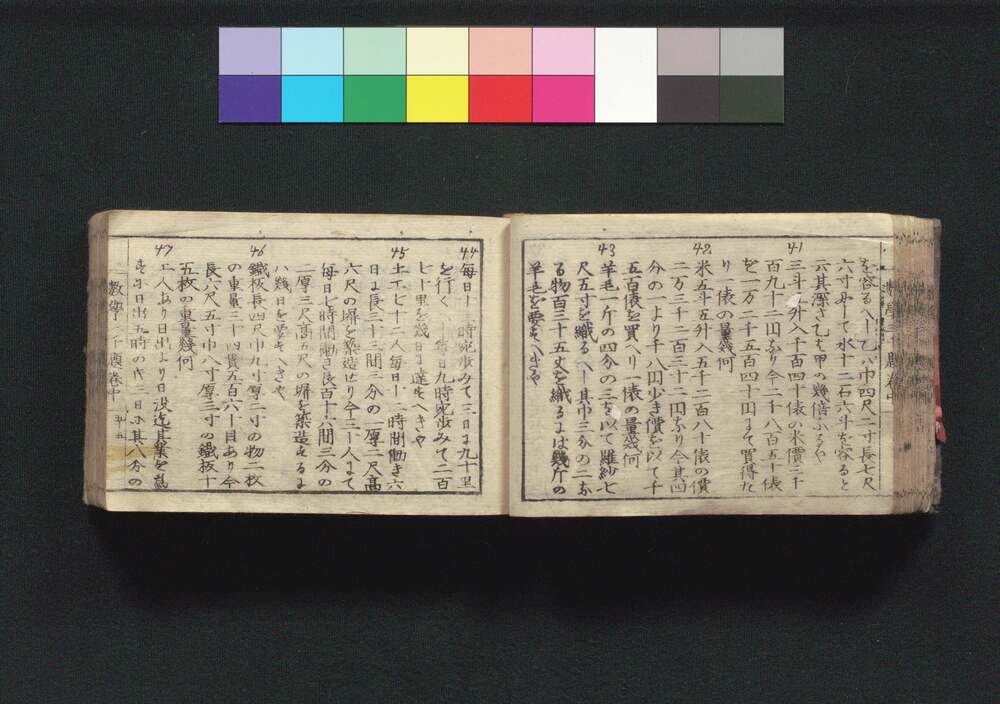 を容るへし乙ハ巾四尺二寸長七尺
六寸にして水十二石六斗を容ると
云其深さ乙も甲の幾倍ふるや
41
三斗 升入千百四十俵の米價三千
百九十二円なり今二千八百五十俵
を一万二千五百四十円にて買得た
り 俵の量幾何
42
米五斗五升入五千二百八十俵の價
二万三千二百三十二円なり今其四
分の一より千八円少き價を以て千
五百俵を買へり一俵の量幾何
43
羊毛一斤の四分の三を以て羅紗七
尺五寸を織るへし其巾三分の二なる
物百三十五丈を織るには幾斤の
羊毛を要すへきや
44
毎日十 時宛歩みて三日に九十里
を行く 毎日九時宛歩みて二百
七十里を幾日に達すへきや
45
土工七十二人毎日十一時間働き六
日に長三十三間三分の 厚二尺高
六尺の塀を築造せり今三十人にて
毎日七時間働き長百十六間三分の
二厚三尺高五尺の塀を築造するに
ハ幾日を要すへきや
46
鐵板長四尺巾九寸厚二寸の物二枚
の重量三十四貫五百六十目あり今
長六尺五寸巾八寸厚三寸の鐵板十
五枚の重量幾何
47
工人あり日出より日没迄其業を為
す 日出五時の代 日に其八分の
數學 題卷中